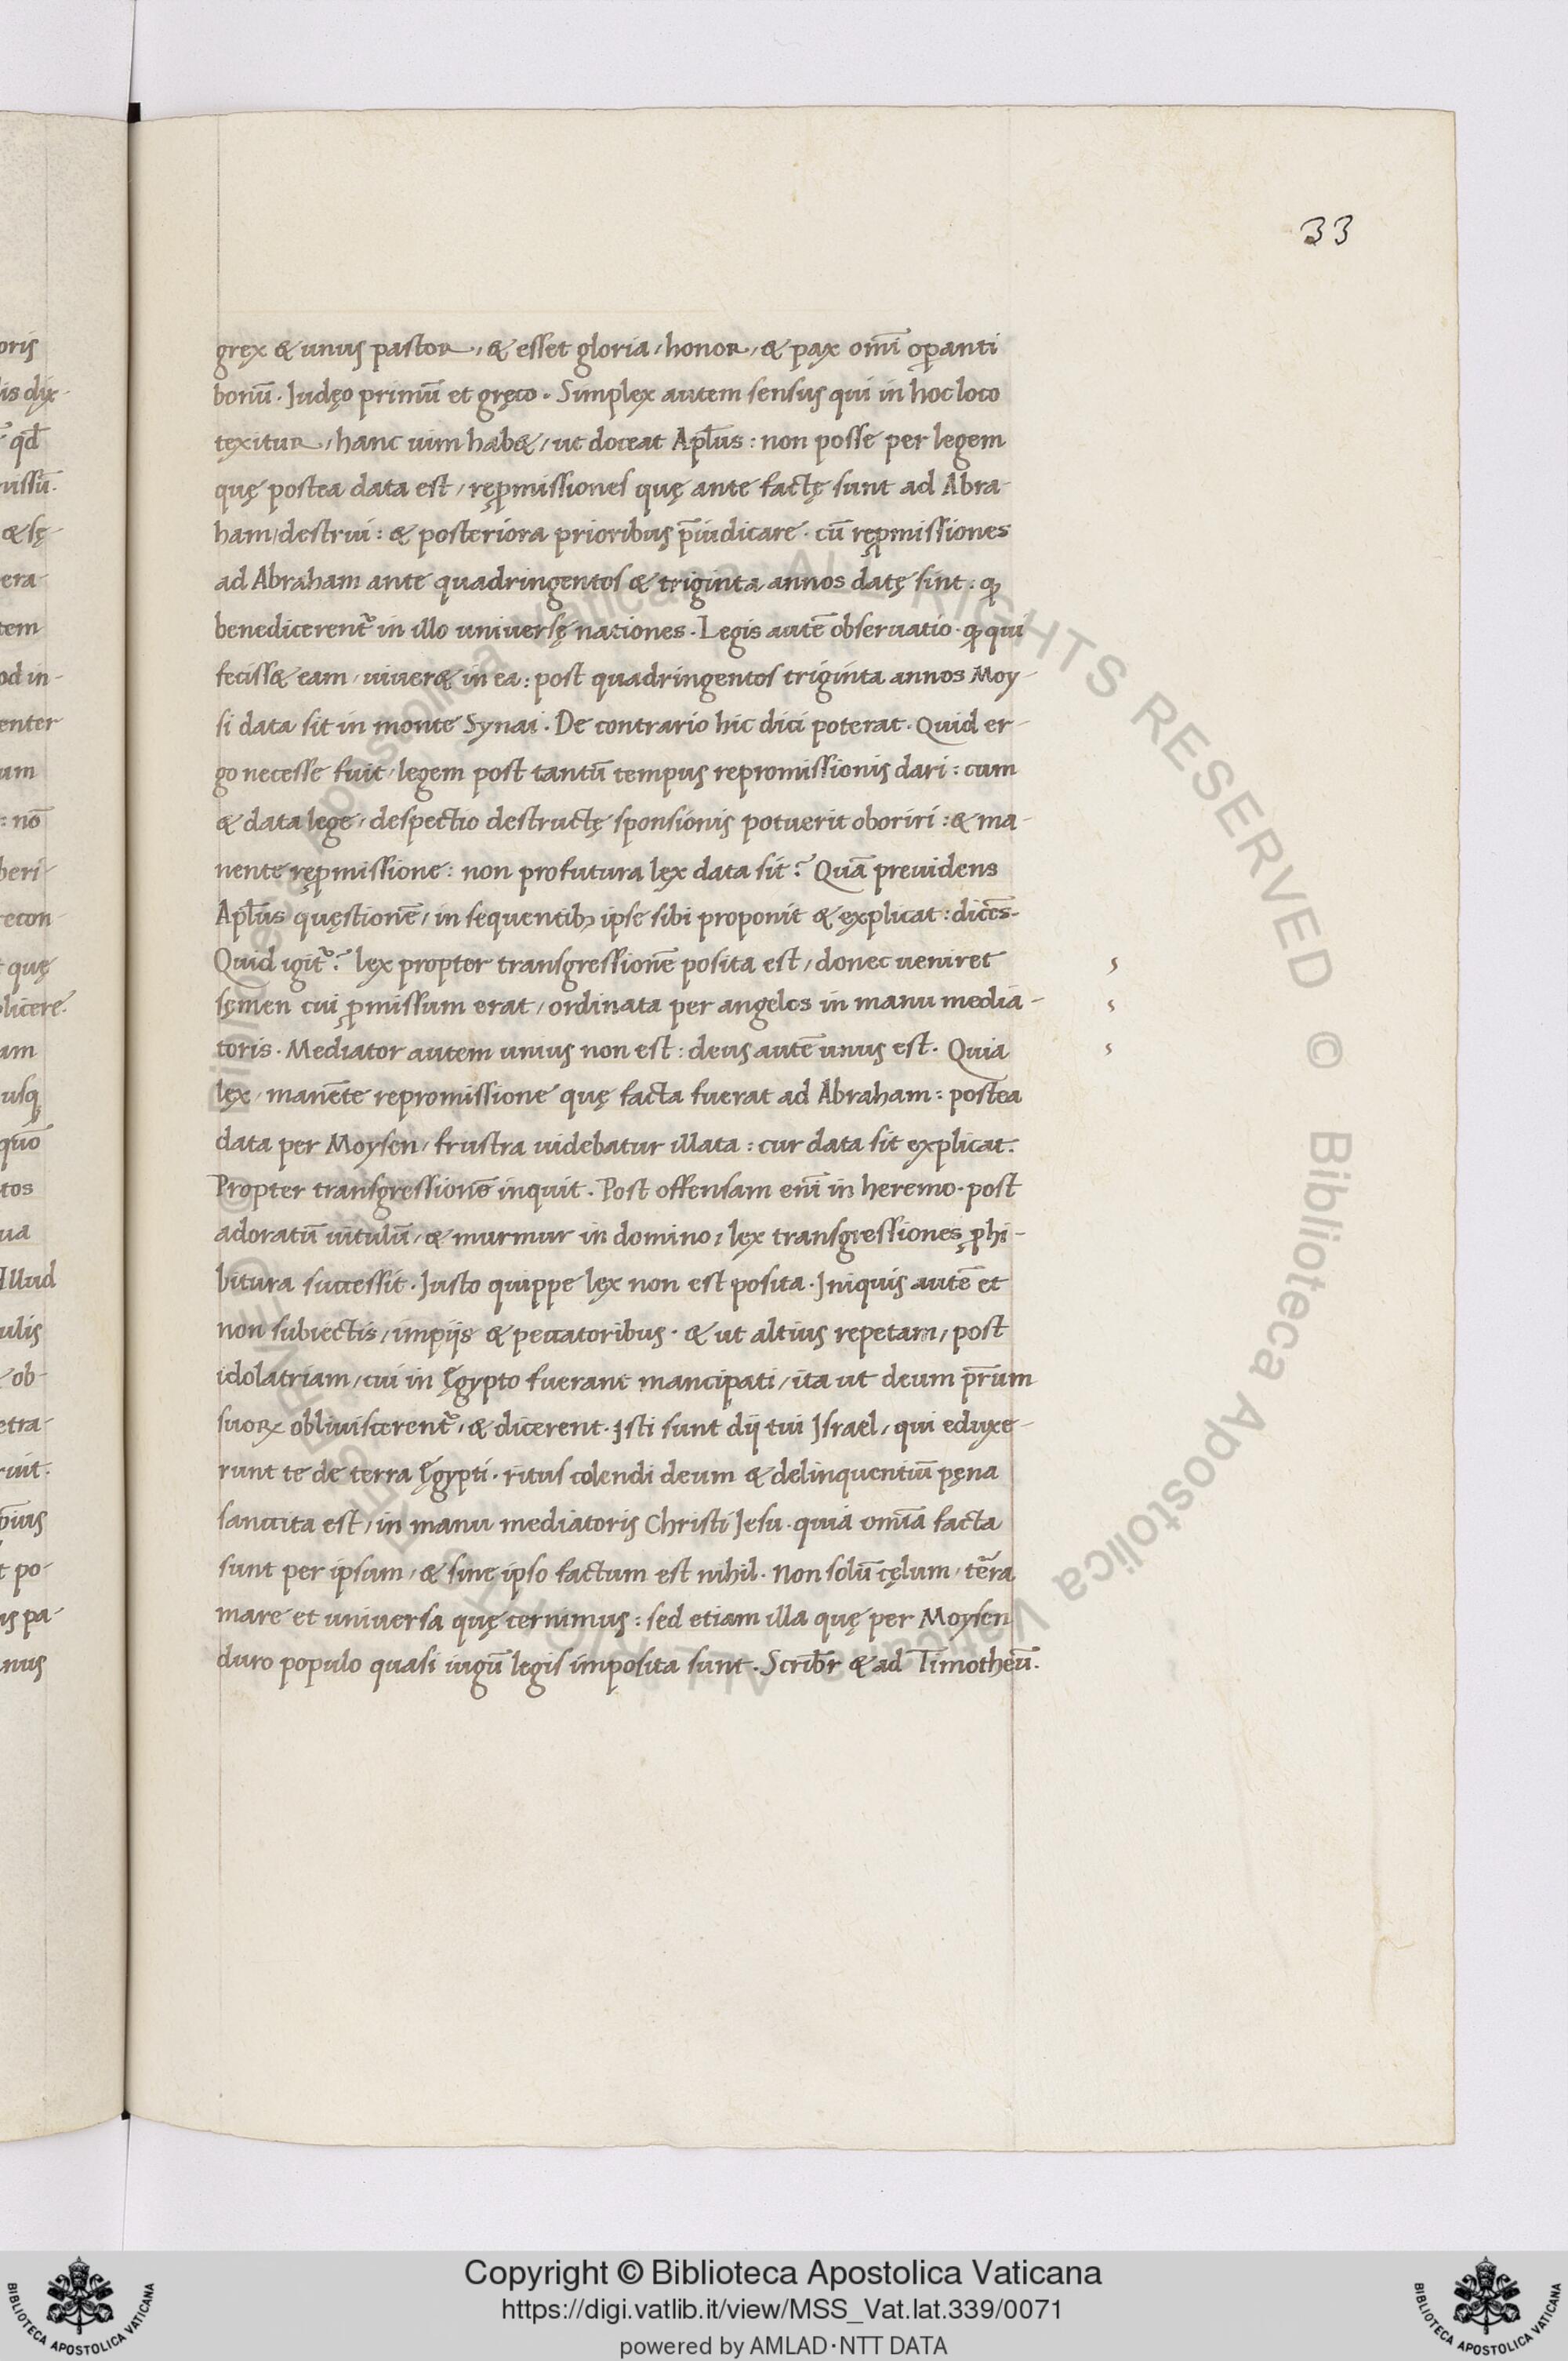 33
gręx & unus pastor, & esset gloria, honor, & pax om̅i op̱anti
bonū. Iudęo primū et gręco. Simplex autem sensus qui in hoc loco
tęxitur, hanc uim hab&, ut doceat Apl̅us: non posse per legem
quę postea data est, rep̱missiones quę ante factę sunt ad Abra-
ham, destrui: & posteriora prioribus p̅iudicare. cū rep̱missiones
ad Abraham ante quadringentos & triginta annos datę sint: ꝙ
benedicerent᷑ in illo uniuersę nationes. Legis autē obseruatio. ꝙ qui
feciss& eam, uiuer& in ea: post quadringentos triginta annos Moy-
si data sit in monte Synai. De contrario hic dici poterat. Quid er-
go necesse fuit, legem post tantū tempus repromissionis dari: cum
& data lege, despectio destructę sponsionis potuerit oboriri: & ma-
nente rep̱missione: non profutura lex data sit? Quā preuidens
Apl̅us quęstionē, in sequentibꝫ ipse sibi proponit & explicat: dicēs.
Quid igit᷑? lex propter transgressionē posita est, donec ueniret
sęmen cui ꝓmissum erat, ordinata per angelos in manu media-
toris. Mediator autem unius non est: deus autē unus est. Quia
lęx, manēte repromissione quę facta fuerat ad Abraham: postea
data per Moysen, frustra uidebatur illata: cur data sit explicat.
Propter transgressionē inquit. Post offensam en̅i in heremo. post
adoratū uitulū, & murmur in domino, lex transgressiones ꝓhi-
bitura successit. Iusto quippe lęx non est posita. Iniquis autē et
non subiectis, impijs & peccatoribus. & ut altius repetam, post
idolatriam, cui in Ęgypto fuerant mancipati, ita ut deum pr̅um
suoꝝ obliuiscerent᷑, & dicerent. Isti sunt dij tui Israel, qui eduxe-
runt te de terra Ęgypti. ritus colendi deum & delinquentiū pęna
sanccita est, in manu mediatoris Christi Iesu. quia om̅ia facta
sunt per ipsum, & sine ipso factum est nihil. Non solū cęlum, tēra
mare et uniuersa quę cernimus: sed etiam illa quę per Moysen
duro populo quasi iugū legis imposita sunt. Scrib̅r & ad Timotheū.
Copyright © Biblioteca Apostolica Vaticana
https://digi.vatlib.it/view/MSS_Vat.lat.339/0071
powered by AMLAD·NTT DATA
BIBLIOTECA APOSTOLICA VATICANA
BIBLIOTECA APOSTOLICA VATICANA